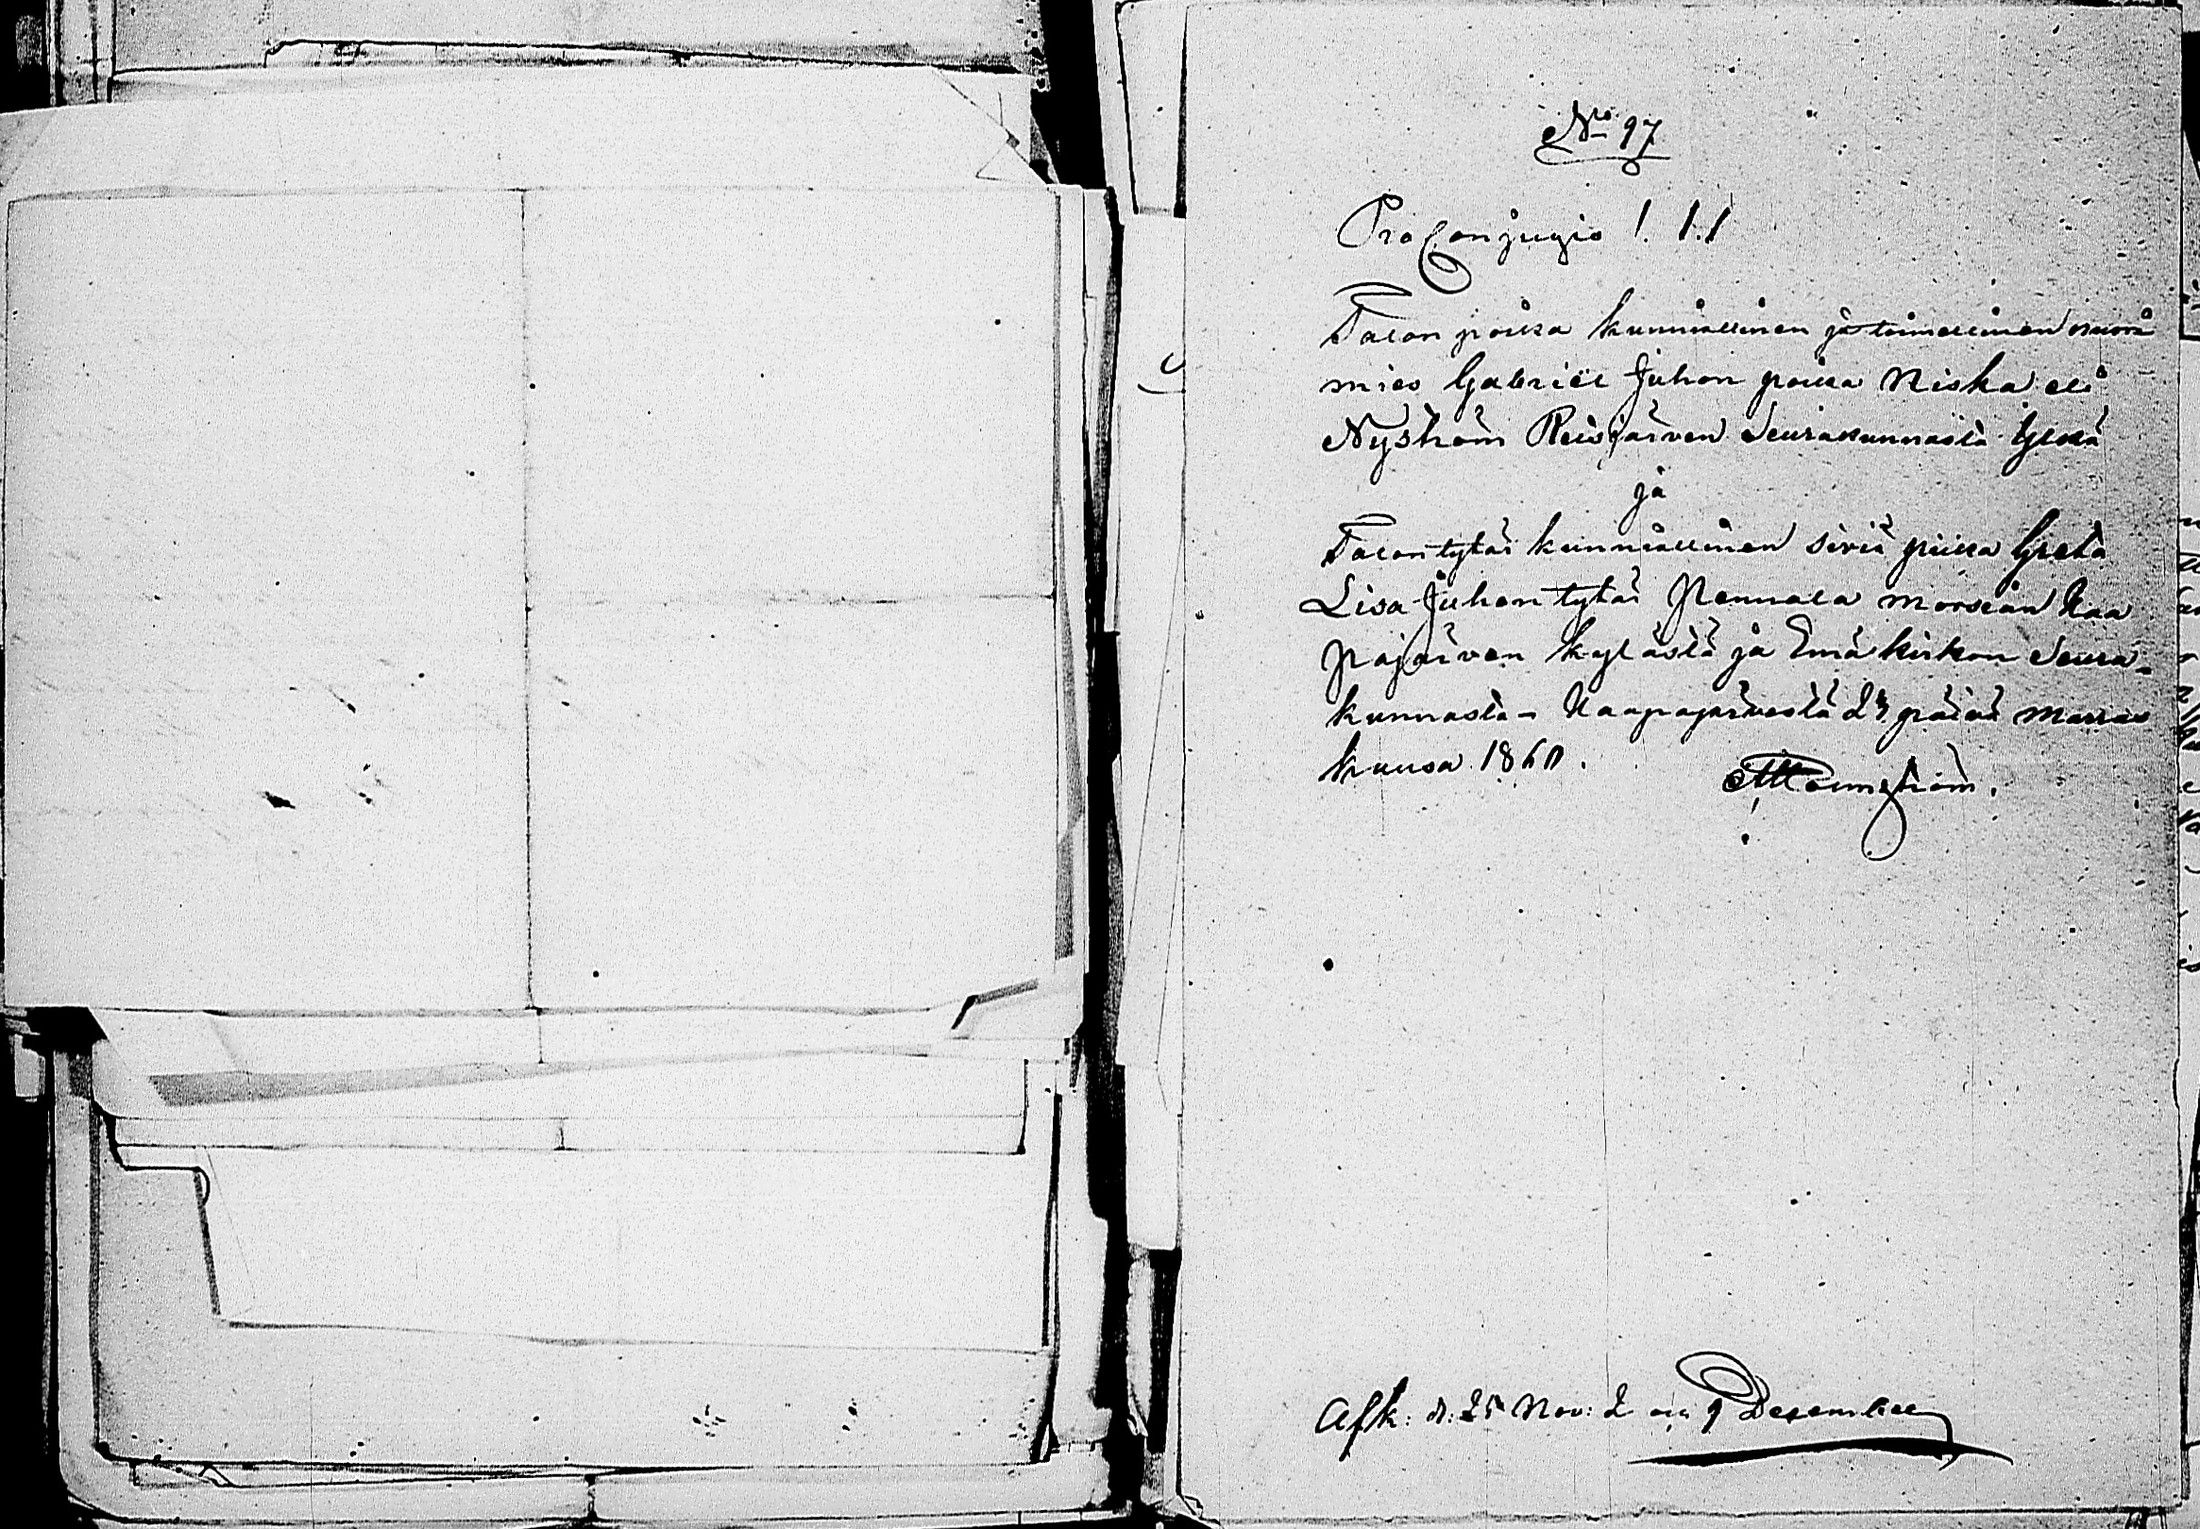 No 97
Pro Conjugio 1. 1.1
Talon poika kunniallinen ja toimellinen nuori
mies Gabriel Juhon poika Niska eli
Nyström Reisjärven Seurakunnasta Ylkä
ja
Talon tytär kunniallinen siviä piika Greta
Lisa Juhon tytär Pennala morsian Haa
pajärven kylästä ja Emäkirkon Seura-
kunnasta - Haapajärvestä päivä Marras
kuusa 1860.
Afk: d: 25 Nov: 2 och 9 Desember